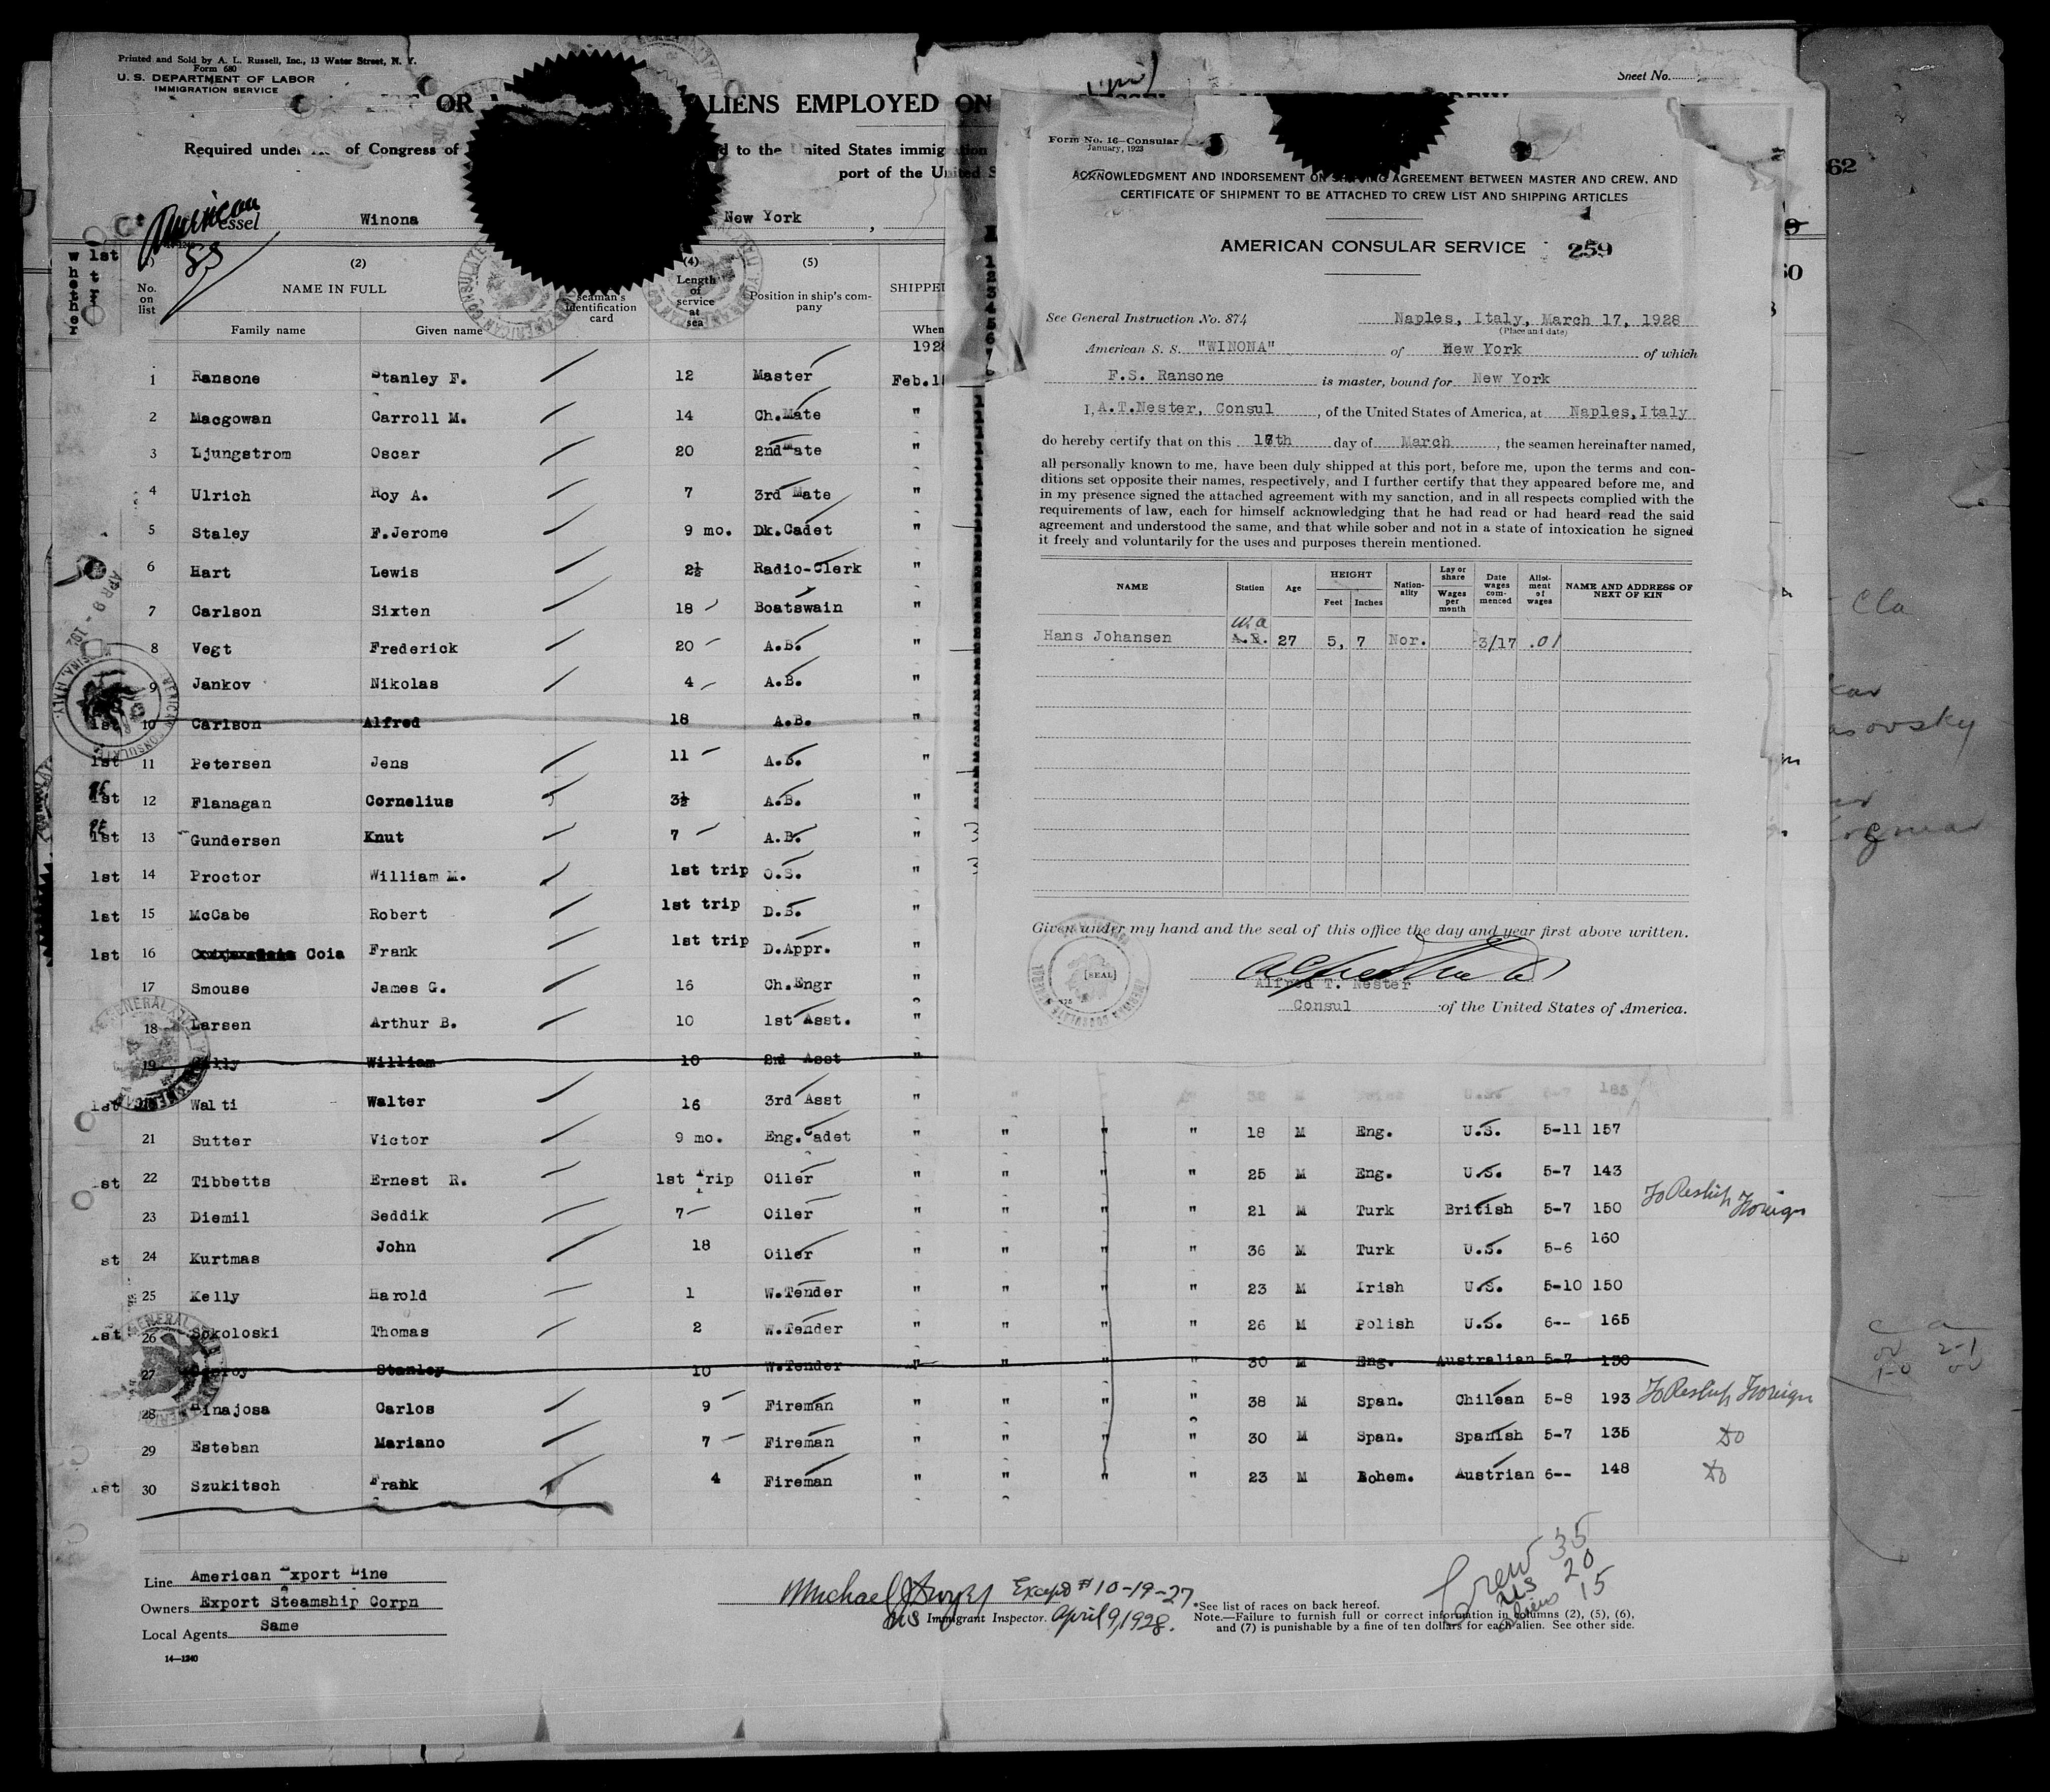 Printed and Sold by A. L. Russell, Inc., 13 Water Street, N. Y.
Form 680
U. S. DEPARTMENT OF LABOR
IMMIGRATION SERVICE
Sheet No.
OR ALIENS EMPLOYED ON
Required under of Congress of to the United States immigration
port of the United S
American
SS
essel Winona New York ,
whether
1st
(2) (4) (5)
No. on list
NAME IN FULL
Family name Given name
seaman's identification card
Length of service at sea
Position in ship's company
SHIPPED
When
1928
1 Ransone Stanley F. 12 Master Feb.1
2 Macgowan Carroll M. 14 Ch.Mate "
3 Ljungstrom Oscar 20 2nd Mate "
4 Ulrich Roy A. 7 3rd Mate "
5 Staley F.Jerome 9 mo. Dk.Cadet "
6 Hart Lewis 2½ Radio-Clerk "
7 Carlson Sixten 18 Boatswain "
8 Vegt Frederick 20 A.B. "
9 Jankov Nikolas 4 A.B. "
1st 10 Carlson Alfred 18 A.B. "
1st 11 Petersen Jens 11 A.B. "
1st 12 Flanagan Cornelius 3½ A.B. "
1st 13 Gundersen Knut 7 A.B. "
1st 14 Proctor William M. 1st trip O.S. "
1st 15 McCabe Robert 1st trip D.B. "
1st 16 Coia Frank 1st trip D.Appr. "
17 Smouse James G. 16 Ch.Engr "
18 Larsen Arthur B. 10 1st Asst. "
19 William 10 2rd Asst "
1st Walti Walter 16 3rd Asst "
21 Sutter Victor 9 mo. Eng.Cadet " " " " 18 M Eng. U.S. 5-11 157
st 22 Tibbetts Ernest R. 1st Trip Oiler " " " " 25 M Eng. U.S. 5-7 143
23 Diemil Seddik 7 Oiler " " " " 21 M Turk British 5-7 150 To Reship Foreign
st 24 Kurtmas John 18 Oiler " " " " 36 M Turk U.S. 5-6 160
25 Kelly Harold 1 W.Tender " " " " 23 M Irish U.S. 5-10 150
1st 26 Sokoloski Thomas 2 W.Tender " " " " 26 M Polish U.S. 6-- 165
27 Stanley 10 W.Tender " " " " 30 M Eng. Australian 5-7 130
28 Hinajosa Carlos 9 Fireman " " " " 38 M Span. Chilean 5-8 193 To Reship Foreign
29 Esteban Mariano 7 Fireman " " " " 30 M Span. Spanish 5-7 135 do
1st 30 Szukitsch Frank 4 Fireman " " " " 23 M Bohem. Austrian 6-- 148 do
Line American Export Line
Owners Export Steamship Corpn
Local Agents Same
14—1240
Except # 10-19-27.
US Immigrant Inspector. April 9, 1928.
Crew 35
US 20
aliens 15
*See list of races on back hereof.
Note.—Failure to furnish full or correct information in columns (2), (5), (6),
and (7) is punishable by a fine of ten dollars for each alien. See other side.
Form No. 16—Consular
January, 1923
ACKNOWLEDGMENT AND INDORSEMENT ON SHIPPING AGREEMENT BETWEEN MASTER AND CREW, AND
CERTIFICATE OF SHIPMENT TO BE ATTACHED TO CREW LIST AND SHIPPING ARTICLES
AMERICAN CONSULAR SERVICE 259
See General Instruction No. 874 Naples, Italy, March 17, 1928
(Place and date)
American S. S. "WINONA" of New York of which
F.S. Ransone is master, bound for New York
I, A.T.Nester, Consul , of the United States of America, at Naples,Italy
do hereby certify that on this 17th day of March , the seamen hereinafter named,
all personally known to me, have been duly shipped at this port, before me, upon the terms and con-
ditions set opposite their names, respectively, and I further certify that they appeared before me, and
in my presence signed the attached agreement with my sanction, and in all respects complied with the
requirements of law, each for himself acknowledging that he had read or had heard read the said
agreement and understood the same, and that while sober and not in a state of intoxication he signed
it freely and voluntarily for the uses and purposes therein mentioned.
NAME Station Age HEIGHT Feet Inches Nation-ality Lay or share Wages per month Date wages com-menced Allot-ment of wages NAME AND ADDRESS OF NEXT OF KIN
wa
Hans Johansen A.B. 27 5, 7 Nor. 3/17 .01
Given under my hand and the seal of this office the day and year first above written.
[SEAL]
Alfred T. Nester
Consul of the United States of America.
62
Cla